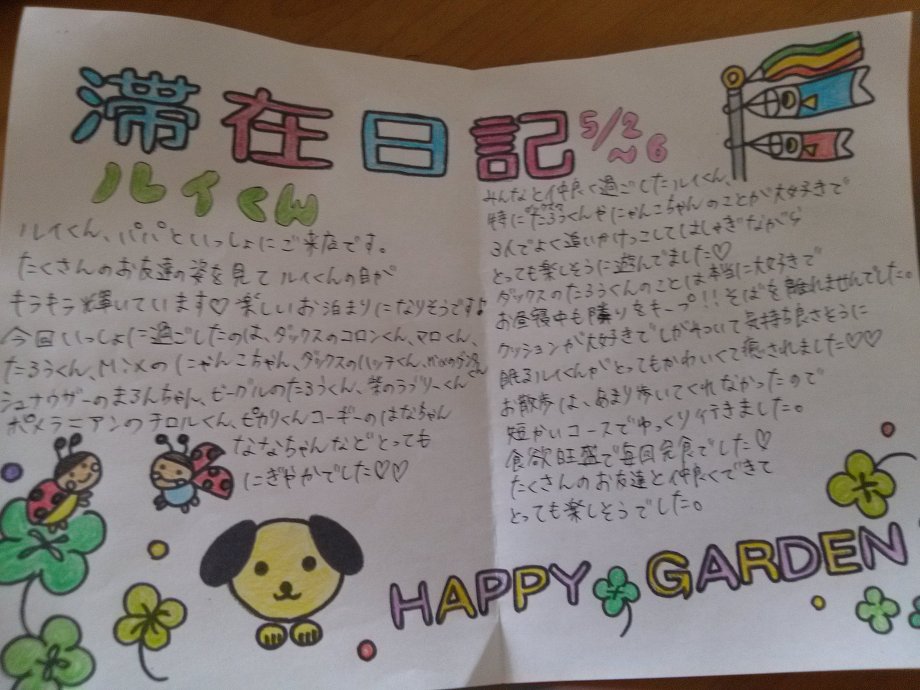 滞在日記
5/2
～6
ルイくん
ルイくん、パパといっしょにご来店です。
たくさんのお友達の姿を見て ルイくんの目が
キラキラ輝いています♡ 楽しいお泊まりになりそうです♪
今回いっしょに過ごしたのは、ダックスのコロンくん、マロくん、
たろうくん、MIXのにゃんこちゃん、ダックスのハッチくん、
シュナウザーのまろんちゃん、ビーグルのたろうくん、柴のラブリーくん
ポメラニアンのチロルくん、ピカリくん コーギーのはなちゃん
ななちゃんなどとっても
にぎやかでした♡♡
みんなと仲良く過ごしたルイくん、
特にたろうくんやにゃんこちゃんのことが大好きで
3人でよく追いかけっこしてはしゃぎながら
とっても楽しそうに遊んでました♡
ダックスのたろうくんのことは本当に大好きで
お昼寝中も隣りをキープ!!そばを離れませんでした。
クッションが大好きでしがみついて気持ち良さそうに
眠るルイくんがとってもかわいくて癒されました♡♡
お散歩は、あまり歩いてくれなかったので
短かいコースでゆっくり行きました。
食欲旺盛で毎回完食でした♡
たくさんのお友達と仲良くできて
とっても楽しそうでした。
HAPPY GARDEN